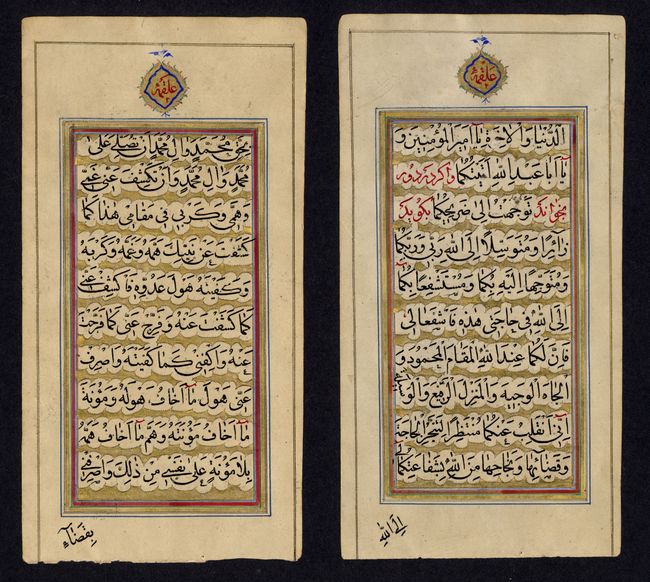 علقمه
الدُّنْيا وَالْاخِرَةِ يا اَميرَ الْمُؤْمِنينَ وَ
يا اَبا عَبْدِ اللهِ اَتَيْتُكُما واكر دردور
بخواند تَوَجَّهْتُ اِلى ضَريحِكُما بكويد
زائِرًا وَمُتَوَسِّلًا اِلَى اللهِ رَبّي وَرَبِّكُما
وَمُتَوَجِّهًا اِلَيْهِ بِكُما وَمُسْتَشْفِعًا بِكُما
اِلَى اللهِ في حاجَتي هذِهِ فَاشْفَعا لي
فَاِنَّ لَكُما عِنْدَ اللهِ الْمَقامَ الْمَحْمُودَ وَ
الْجاهَ الْوَجيهَ وَالْمَنْزِلَ الرَّفيعَ
اِنّي اَنْقَلِبُ عَنْكُما مُنْتَظِرًا لِتَنَجُّزِ الْحاجَةِ
وَقَضائِها وَنَجاحِها مِنَ اللهِ بِشَفاعَتِكُما لي
اِلَى اللهِ
علقمه
بِحَقِّ مُحَمَّدٍ وَالِ مُحَمَّدٍ اَنْ تُصَلِّيَ عَلى
مُحَمَّدٍ وَالِ مُحَمَّدٍ وَاَنْ تَكْشِفَ عَنّي غَمّي
وَهَمّي وَكَرْبي في مَقامي هذا كَما
كَشَفْتَ عَنْ نَبِيِّكَ هَمَّهُ وَغَمَّهُ وَكَرْبَهُ
وَكَفَيْتَهُ هَوْلَ عَدُوِّهِ فَاكْشِفْ عَنّي
كَما كَشَفْتَ عَنْهُ وَفَرِّجْ عَنّي كَما فَرَّجْتَ
عَنْهُ وَاكْفِني كَما كَفَيْتَهُ وَاصْرِفْ
عَنّي هَوْلَ ما اَخافُ هَوْلَهُ وَمَؤُنَةَ
ما اَخافُ مَؤُنَتَهُ وَهَمَّ ما اَخافُ هَمَّهُ
بِلا مَؤُنَةٍ عَلى نَفْسي مِنْ ذلِكَ وَاصْرِفْني
بِقَضاءِ